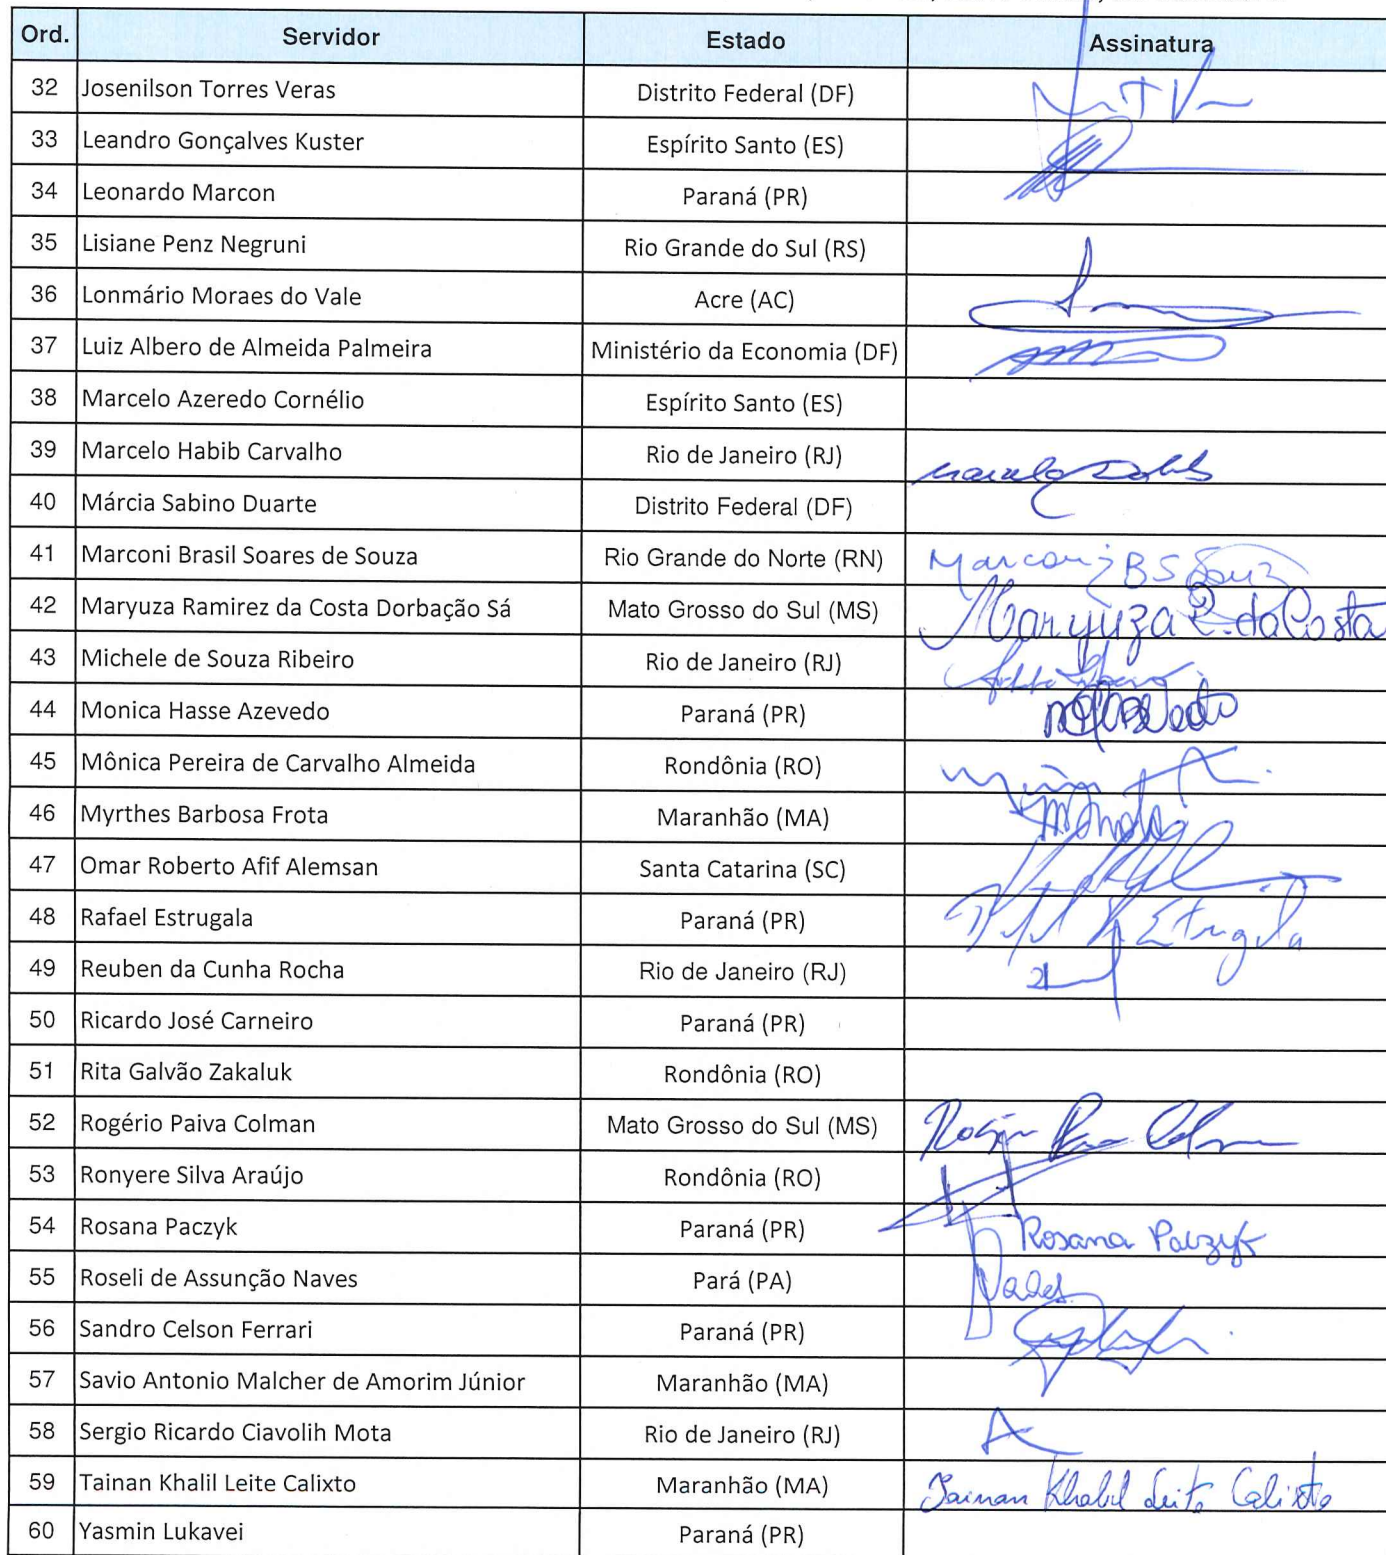 Ord. Servidor Estado Assinatura
32 Josenilson Torres Veras Distrito Federal (DF)
33 Leandro Gonçalves Kuster Espírito Santo (ES)
34 Leonardo Marcon Paraná (PR)
35 Lisiane Penz Negruni Rio Grande do Sul (RS)
36 Lonmário Moraes do Vale Acre (AC)
37 Luiz Albero de Almeida Palmeira Ministério da Economia (DF)
38 Marcelo Azeredo Cornélio Espírito Santo (ES)
39 Marcelo Habib Carvalho Rio de Janeiro (RJ)
40 Márcia Sabino Duarte Distrito Federal (DF)
41 Marconi Brasil Soares de Souza Rio Grande do Norte (RN) Marconi BS Souz
42 Maryuza Ramirez da Costa Dorbação Sá Mato Grosso do Sul (MS) Maryuza R. da Costa
43 Michele de Souza Ribeiro Rio de Janeiro (RJ)
44 Monica Hasse Azevedo Paraná (PR)
45 Mônica Pereira de Carvalho Almeida Rondônia (RO)
46 Myrthes Barbosa Frota Maranhão (MA)
47 Omar Roberto Afif Alemsan Santa Catarina (SC)
48 Rafael Estrugala Paraná (PR)
49 Reuben da Cunha Rocha Rio de Janeiro (RJ)
50 Ricardo José Carneiro Paraná (PR)
51 Rita Galvão Zakaluk Rondônia (RO)
52 Rogério Paiva Colman Mato Grosso do Sul (MS)
53 Ronyere Silva Araújo Rondônia (RO)
54 Rosana Paczyk Paraná (PR) Rosana Paczyk
55 Roseli de Assunção Naves Pará (PA)
56 Sandro Celson Ferrari Paraná (PR)
57 Savio Antonio Malcher de Amorim Júnior Maranhão (MA)
58 Sergio Ricardo Ciavolih Mota Rio de Janeiro (RJ)
59 Tainan Khalil Leite Calixto Maranhão (MA) Tainan Khalil Leite Calixto
60 Yasmin Lukavei Paraná (PR)